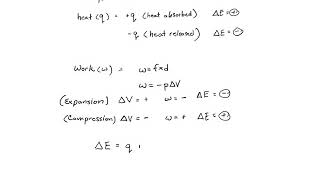 heat (q) = +q (heat absorbed) ΔE = ⊕
-q (heat released) ΔE = ⊖
Work (ω) = ω = f×d
ω = -pΔV
(Expansion) ΔV = + ω = - ΔE = ⊖
(Compression) ΔV = - ω = + ΔE = ⊕
ΔE = q